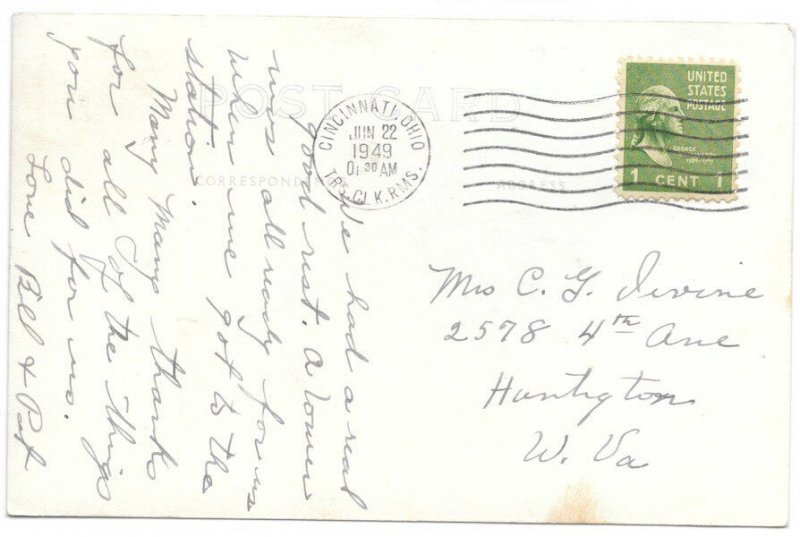 POST CARD
CORRESPONDENCE
ADDRESS
CINCINNATI, OHIO
JUN 22
1949
01 30 AM
TR. CLK. R.M.S.
UNITED
STATES
POSTAGE
GEORGE
1 CENT 1
We had a real
good rest. A lower
was all ready for us
when we got to the
station.
Many Many thanks
for all of the things
you did for us.
Love Bill & Pat
Mrs C. G. Irvine
2578 4th Ave
Huntington
W. Va